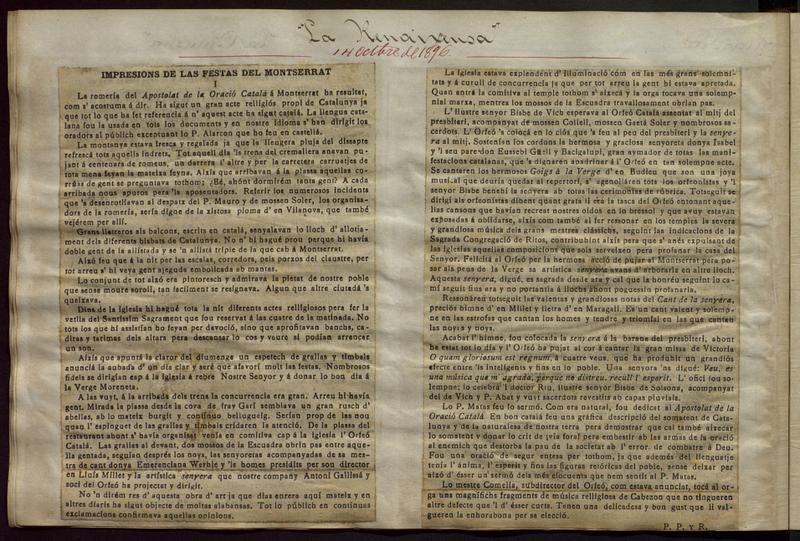 "La Renaixensa"
14 octbre de 1896
IMPRESIONS DE LAS FESTAS DEL MONTSERRAT
I
La romería del Apostolat de la Oració Catalá á Montserrat ha resultat,
com s' acostuma á dir. Ha sigut un gran acte relligiós propi de Catalunya ja
que tot lo que ha fet referencia á n' aquest acte ha sigut catalá. La llengua cata-
lana fou la usada en tots los documents y en nostre idioma s' han dirigit los
oradors al públich exceptuant lo P. Alarcon que ho feu en castellá.
La montanya estava fresca y regalada ja que la lleugera pluja del dissapte
refrescá tots aquells indrets. Tot aquell dia 'ls trens del cremallera anavan pu-
jant á centenars de romeus, un darrera l' altre y per la carretera carruatjes de
tota mena feyan la mateixa feyna. Aixís que arribavan á la plassa aquellas co-
rrúas de gent se preguntava tothom: ¿Bé, ahónt dormirém tanta gent? A cada
arribada nous apuros pera 'la aposentadors. Referir los numerosos incidents
que 's desenrotllavan al despatx del P. Mauro y de mossen Soler, los organisa-
dors de la romería, sería digne de la xistosa ploma d' en Vilanova, que també
vejérem per allí.
Grans lletreros als balcons, escrits en catalá, senyalavan lo lloch d' allotja-
ment dels diferents bisbats de Catalunya. No n' hi hagué prou perque hi havía
doble gent de la allistada y se 'n allistá triple de la que cab á Montserrat.
Aixó feu que á la nit per las escalas, corredors, pels porxos del claustre, per
tot arreu s' hi veya gent ajeguda embolicada ab mantas.
Lo conjunt de tot aixó era pintoresch y admirava la pietat de nostre poble
que sense moure soroll, tan facilment se resignava. Algun que altre ciutadá 's
queixava.
Dins de la iglesia hi hagué tota la nit diferents actes relligiosos pera fer la
vetlla del Santíssim Sagrament que fou reservat á las cuatre de la matinada. No
tots los que hi assistían ho feyan per devoció, sino que aprofitavan banchs, ca-
diras y tarimas dels altars pera descansar lo cos y veure si podían arrencar
un son.
Aixís que apuntá la claror del diumenge un espetech de grallas y timbals
anunciá la aubada d' un dia clar y seré que afavorí molt las festas. Nombrosos
fidels se dirigían cap á la iglesia á rebre Nostre Senyor y á donar lo bon dia á
la Verge Moreneta.
A las vuyt, á la arribada dels trens la concurrencia era gran. Arreu hi havía
gent. Mirada la plassa desde la cova de fray Garí semblava un gran rusch d'
abellas, ab lo mateix burgit y contínuo bellugueig. Serían prop de las nou
quan l' espinguet de las grallas y timbals cridaren la atenció. De la plassa del
restaurant abont s' havía organisat venía en comitiva cap á la iglesia l' Orfeó
Catalá. Las grallas al devant, dos mossos de la Escuadra obrin pas entre aque-
lla gentada, seguían després los noys, las senyoretas acompanyadas de sa mes-
tra de cant donya Emerenciana Werhle y 'ls homes presidits per son director
en Lluís Millet y la artística senyera que nostre company Antoni Gallissá y
soci del Orfeó ha projectat y dirigit.
No 'n dirém res d' aquesta obra d' art ja que días enrera aquí mateix y en
altres diaris ha sigut objecte de moltas alabansas. Tot lo públich en contínuas
exclamacions confirmava aquellas opinions.
La iglesia estava explendent d' illuminació com en las més grans solemni-
tats y á curull de concurrencia ja que per tot arreu la gent hi estava apretada.
Quan entrá la comitiva al temple tothom s' aixecá y la orga tocava una solemp-
nial marxa, mentres los mossos de la Escuadra travallosament obrían pas.
L' ilustre senyor Bisbe de Vich esperava al Orfeó Catalá assentat al mitj del
presbiteri, acompanyat de mossen Collell, mossen Gaetá Soler y nombrosos sa-
cerdots. L' Orfeó 's colocá en lo clós que 's feu al peu del presbiteri y la senye-
ra al mitj. Sostenían los cordons la hermosa y graciosa senyoreta donya Isabel
y 'l seu pare don Eussebi Güell y Bacigalupi, gran aymador de totas las mani-
festacions catalanas, que 's dignaren apadrinar á l' Orfeó en tan solempne acte.
Se cantaren los hermosos Goigs á la Verge d' en Budieu que son una joya
musical que deuría quedar al repertori, s' agenollaren tots los orfeonistas y 'l
senyor Bisbe benehí la senyera ab totas las cerimonias de rúbrica. Totseguit se
dirigí als orfeonistas dihent quant grata li era la tasca del Orfeó entonant aque-
llas cansons que havían recreat nostres oidos en lo bressol y que avuy estavan
exposadas á oblidarse, aixís com també al fer ressonar en los temples la severa
y grandiosa música dels grans mestres clássichs, seguint las indicacions de la
Sagrada Congregació de Ritos, contribuhint aixís pera que s' anés expulsant de
las iglesias aquellas composicions que sols serveixen pera profanar la casa del
Senyor. Felicitá al Orfeó per la hermosa acció de pujar al Montserrat pera po-
sar als peus de la Verge sa artística senyera avans d' arborarla en altre lloch.
Aquesta senyera, digué, es sagrada desde ara y cal que la honréu seguint lo ca-
mí seguit fins ara y no portantla á llochs ahont poguessin profanarla.
Ressonáren totseguit las valentas y grandiosas notas del Cant de la senyera,
preciós himne d' en Millet y lletra d' en Maragall. Es un cant valent y solemp-
ne en las estrofas que cantan los homes y tendre y triomfal en las que cantan
las noyas y noys.
Acabat l' himne, fou colocada la senyera á la barana del presbiteri, ahont
ha estat tot lo dia y l' Orfeó ha pujat al cor á cantar la gran missa de Victoria
O quam gloriosum est regnum, á cuatre veus, que ha produhit un grandiós
efecte entre 'ls inteligents y fins en lo poble. Una senyora 'ns digué: Veu, es
una música que m' agrada, perque no distreu, recull l' esperit. L' ofici fou so-
lempne; lo celebrá l' doctor Riu, ilustre senyor Bisbe de Solsona, acompanyat
del de Vich y P. Abat y vuyt sacerdots revestits ab capas pluvials.
Lo P. Matas feu lo sermó. Com era natural, fou dedicat al Apostolat de la
Oració Catalá. En bon catalá feu una gráfica descripció del somatent de Cata-
lunya y de la naturalesa de nostra terra pera demostrar que cal també aixecar
lo somatent y donar lo crit de ¡via fora! pera embestir ab las armas de la oració
al enemich que destorba la pau de la societat ab l' error de combatre á Deu.
Fou una oració de segur entesa per tothom, ja que además del llenguatje
tenía l' ánima, l' esperit y fins las figuras retóricas del poble, sense deixar per
aixó d' esser un sermó dels més eloqüents que hem sentit al P. Matas.
Lo mestre Comella, subdirector del Orfeó, com estava anunciat, tocá al or-
ga una magnífichs fragments de música relligiosa de Cabezon que no tingueren
altre defecte que 'l d' ésser curts. Tenen una delicadesa y bon gust que li val-
gueren la enhorabona per sa elecció.
P. P. y R.